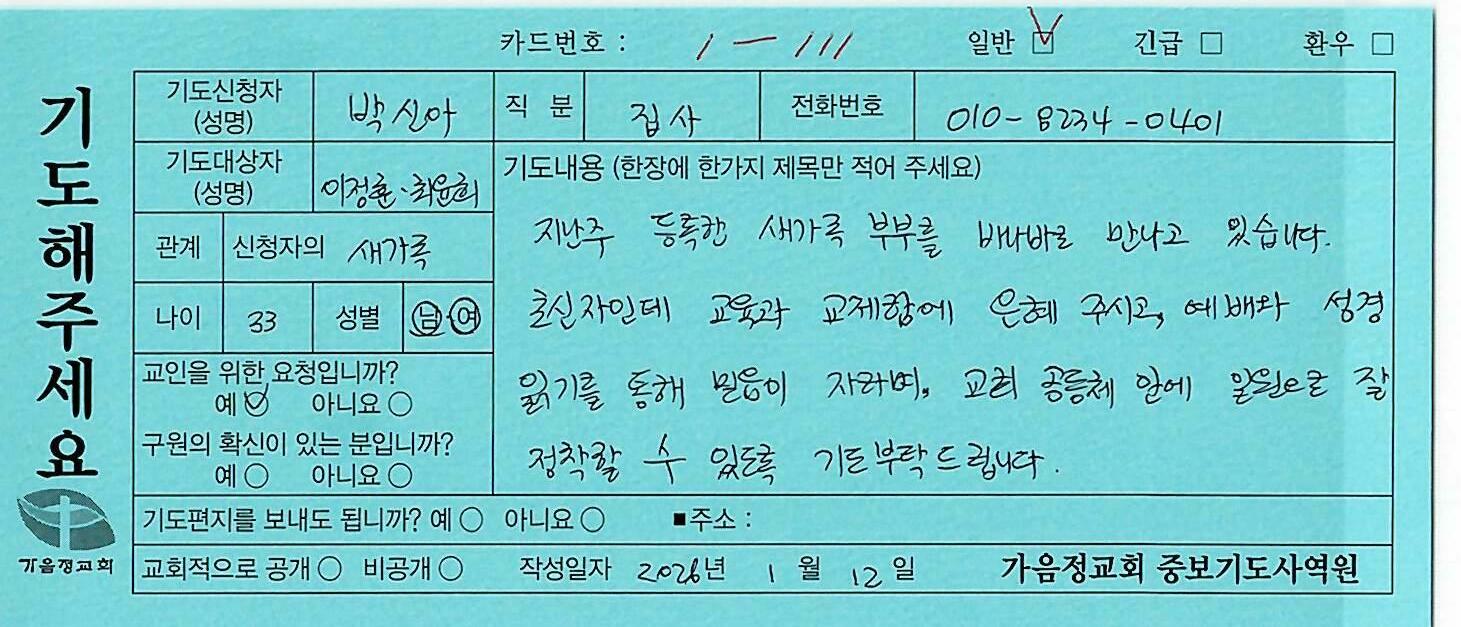 카드번호 : 1 - 111 일반 ☑ 긴급 □ 환우 □
기도해주세요
기도신청자 (성명) 박신아 직 분 집사 전화번호 010-8234-0401
기도대상자 (성명) 이정훈·최윤희
관계 신청자의 새가족
나이 33 성별 남·여
교인을 위한 요청입니까?
예 ☑ 아니요 ○
구원의 확신이 있는 분입니까?
예 ○ 아니요 ○
기도내용 (한장에 한가지 제목만 적어 주세요)
지난주 등록한 새가족 부부를 바나바로 만나고 있습니다.
초신자인데 교육과 교제함에 은혜 주시고, 예배와 성경
읽기를 통해 믿음이 자라며, 교회 공동체 안에 일원으로 잘
정착할 수 있도록 기도부탁드립니다.
기도편지를 보내도 됩니까? 예 ○ 아니요 ○ ■주소 :
교회적으로 공개 ○ 비공개 ○ 작성일자 2026년 1월 12일 가음정교회 중보기도사역원
가음정교회